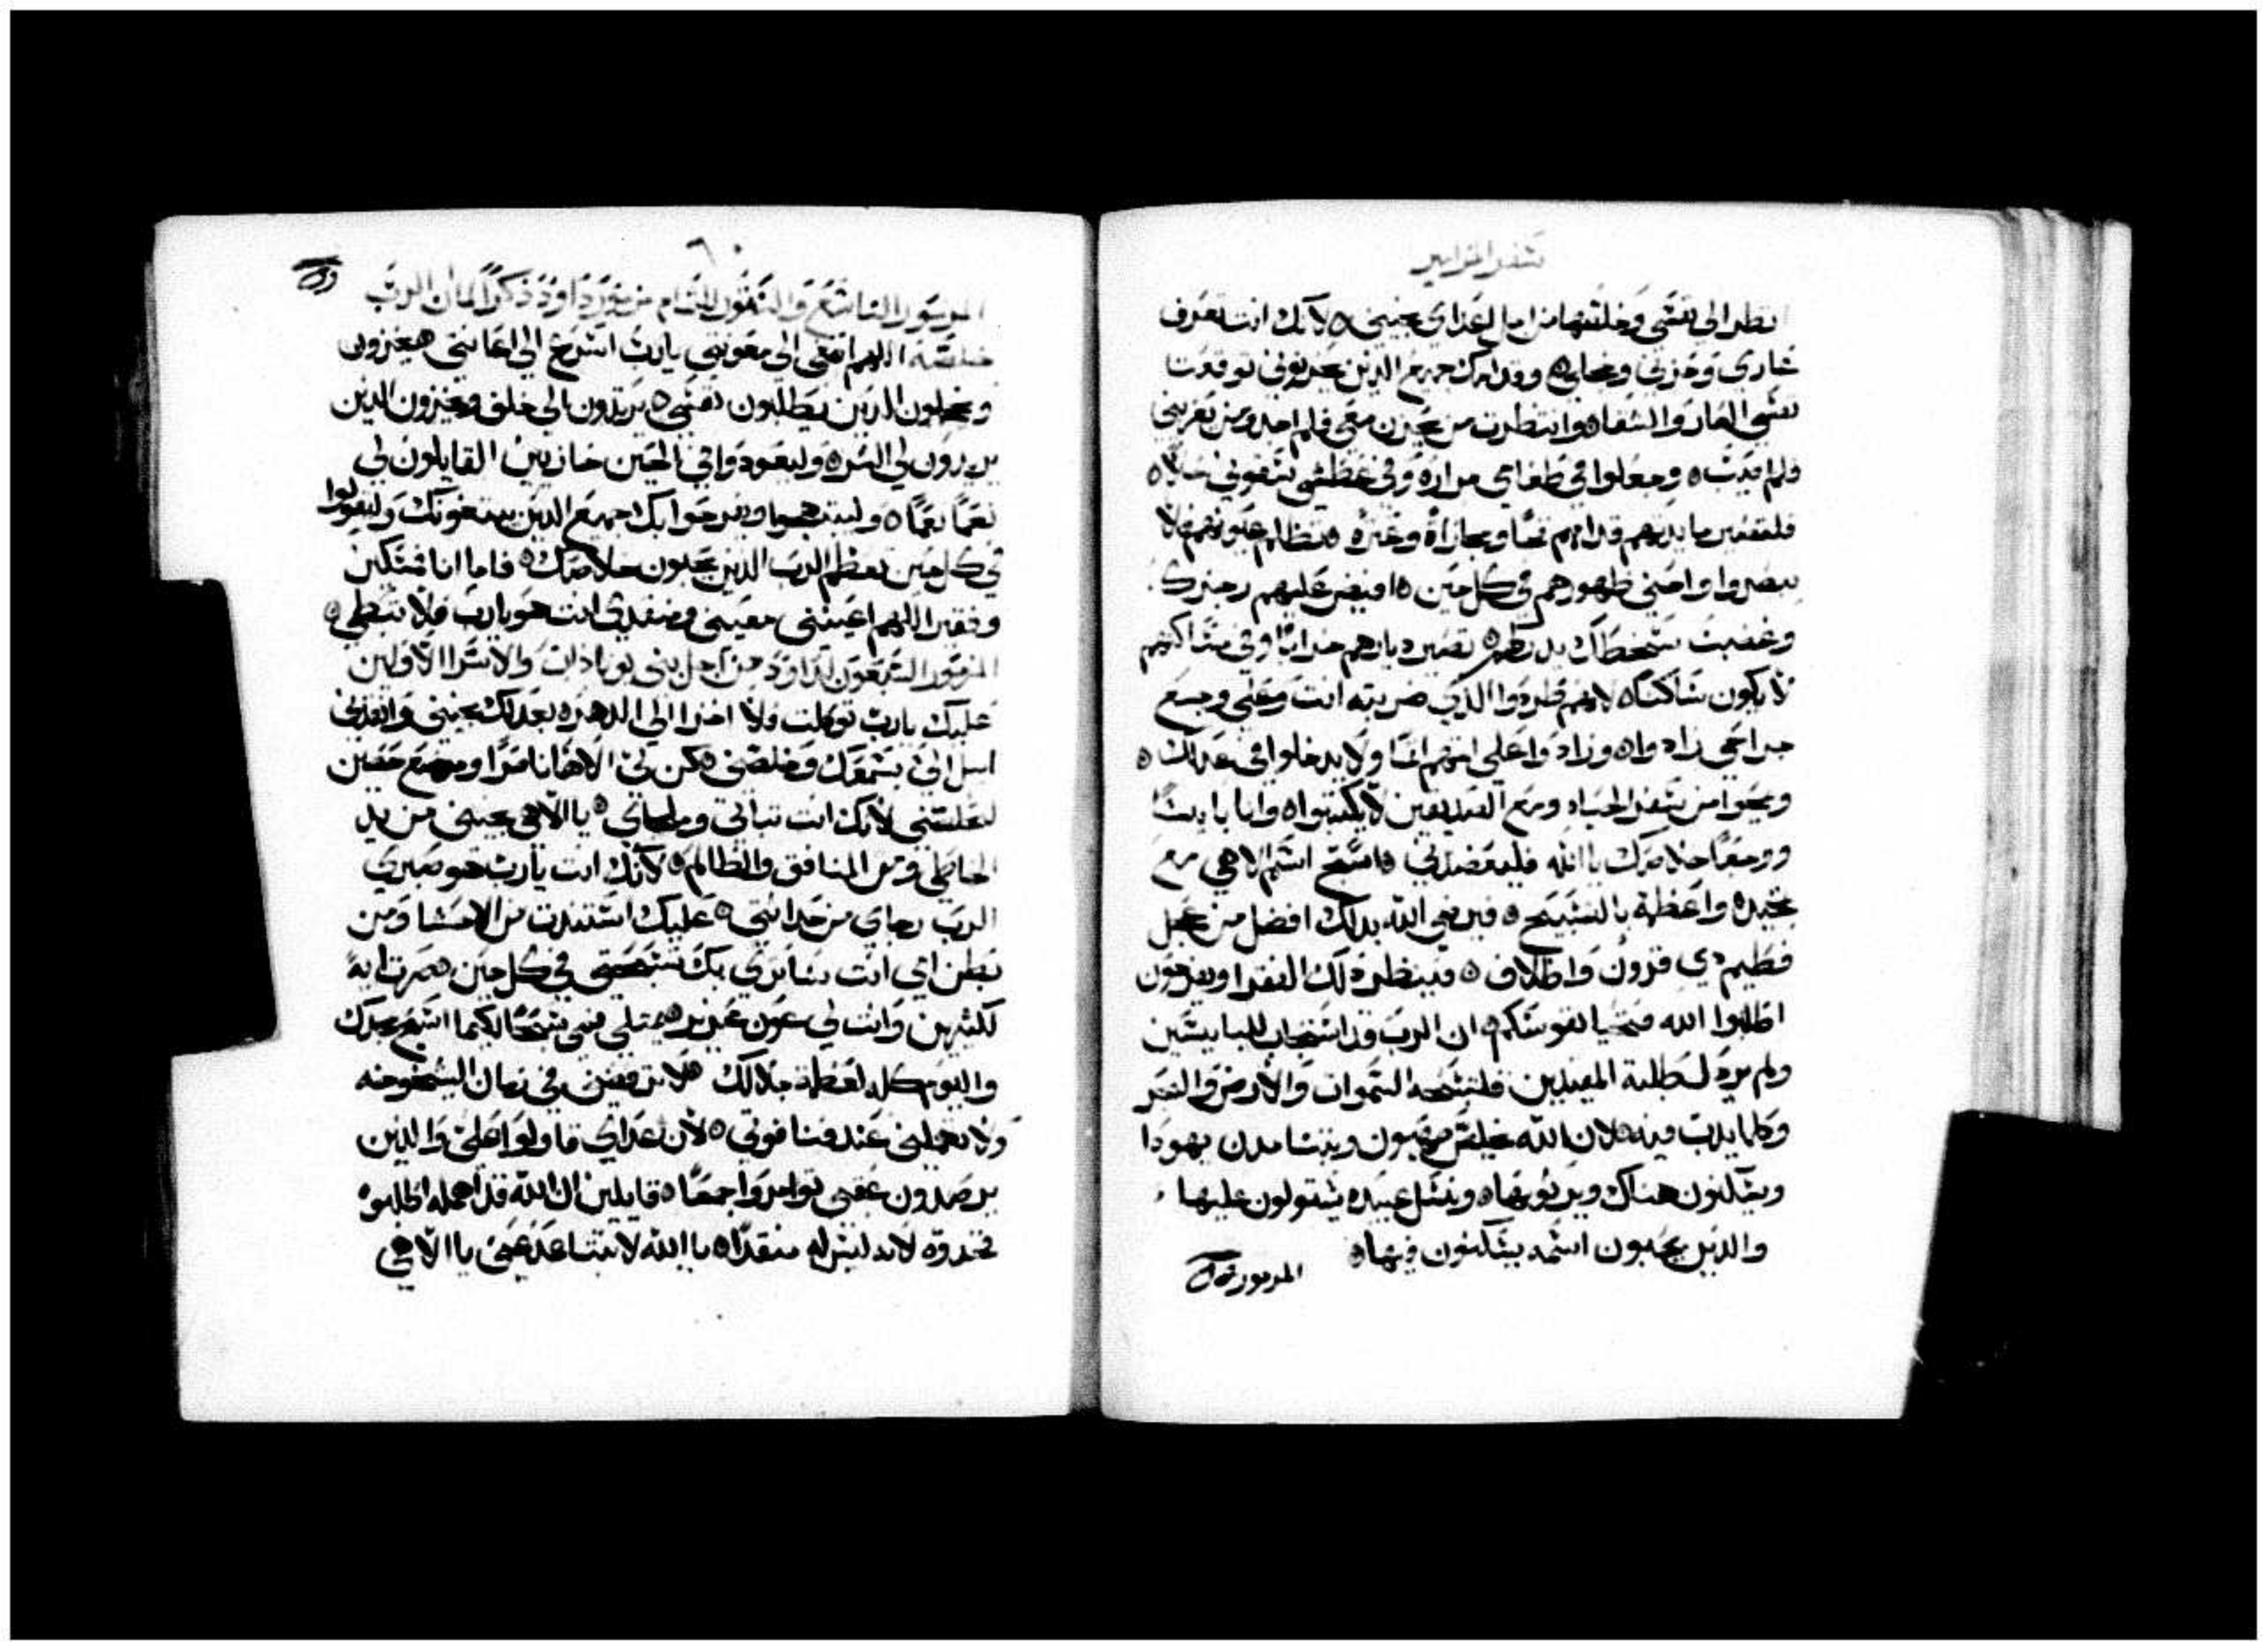 سفر المزامير
انظر الي نفسي وخلصها من اجل اعداي نجيني ٥ لانك انت تعرف
عاري وخزيي وخجلي ٥ وقدامك جميع الذين يحزنوني توقعت
نفسي العار والشقاه وانتظرت من يحزن معي فلم اجد ومن يعزيني
فلم اصبت ٥ وجعلوا في طعامي مراره وفي عطشي سقوني خلا ٥
فلتصير مايدتهم قدامهم فخا ومجازاة وعثره ٥ تظلم عيونهم فلا
يبصروا واحني ظهورهم في كل حين ٥ افيض عليهم رجزك
وغضب سخطك يدركهم ٥ تصير ديارهم خرابا وفي مساكنهم
لا يكون ساكنا ٥ لانهم طردوا الذي ضربته انت وعلي وجع
جراحي زادوا ٥ وزاد واعلي اثمهم اثما ولا يدخلوا في عدلك ٥
ويمحوا من سفر الحياه ومع الصديقين لا يكتبوا ٥ وانا بايسا
ووجعا خلاصك يا الله فليعضدني ٥ اسبح اسم الاهي مع
تمجيده واعظمه بالتسبيح ٥ فيرضي الله بذلك افضل من عجل
فطيم ذي قرون واظلاف ٥ فينظر ذلك الفقرا ويفرحون
اطلبوا الله فتحيا نفوسكم ٥ ان الرب قد استجاب للبايسين
ولم يرذل طلبة المقيدين فلتسبحه السموات والارض والبحر
وكلما يدب فيه ٥ لان الله يخلص صهيون ويبتنا مدن يهودا
ويسكنون هناك ويرثونها ٥ ونسل عبيده يستولون عليها
والذين يحبون اسمه يسكنون فيها ٥
المزمور
٦٠
المزمور التاسع والستون للتمام مزمور داود ذكرا لمان الرب
خلصه اللهم اصغى الي معونتي يارب اسرع الي اعانتي ٥ يخزون
ويخجلون الذين يطلبون نفسي ٥ يرتدون الي خلف ويخزون الذين
يريدون لي الشر ٥ وليعودوا في الحين خازيين القايلون لي
نعما نعما ٥ وليبتهجوا ويفرحوا بك جميع الذين يبتغونك وليقولوا
في كل حين يعظم الرب الذين يحبون خلاصك ٥ فاما انا فمسكين
وفقير اللهم اعينني معيني ومنقذي انت هو يارب فلا تبطي ٥
المزمور السبعون لداود من اجل بني يوناداب والاسرا الاولين
عليك يارب توكلت فلا اخزا الي الدهر ٥ بعدلك نجيني وانقذني
امل الي بسمعك وخلصني ٥ كن لي الاها ناصرا وموضع حصين
لتخلصني لانك انت تباتي وملجاي ٥ يا الاهي نجيني من يد
الخاطي ومن المنافق والظالم ٥ لانك انت يارب هو صبري
الرب رجاي من حداثتي ٥ عليك استندت من الاحشا ومن
بطن امي انت ساتري بك تسبحتي في كل حين ٥ صرت ايه
لكثيرين وانت لي عون عزيز ٥ يمتلي فمي تسبحا لكيما اسبح مجدك
واليوم كله لعظمة جلالك ٥ لا ترفضني في زمان الشيخوخه
ولا تهملني عند فنا قوتي ٥ لان اعداي قاولوا علي والذين
يرصدون نفسي توامروا جمعا ٥ قايلين ان الله قد اهمله اطلبوه
فخدوه لانه ليس له منقذا ٥ يا الله لا تتباعد عني يا الاهي